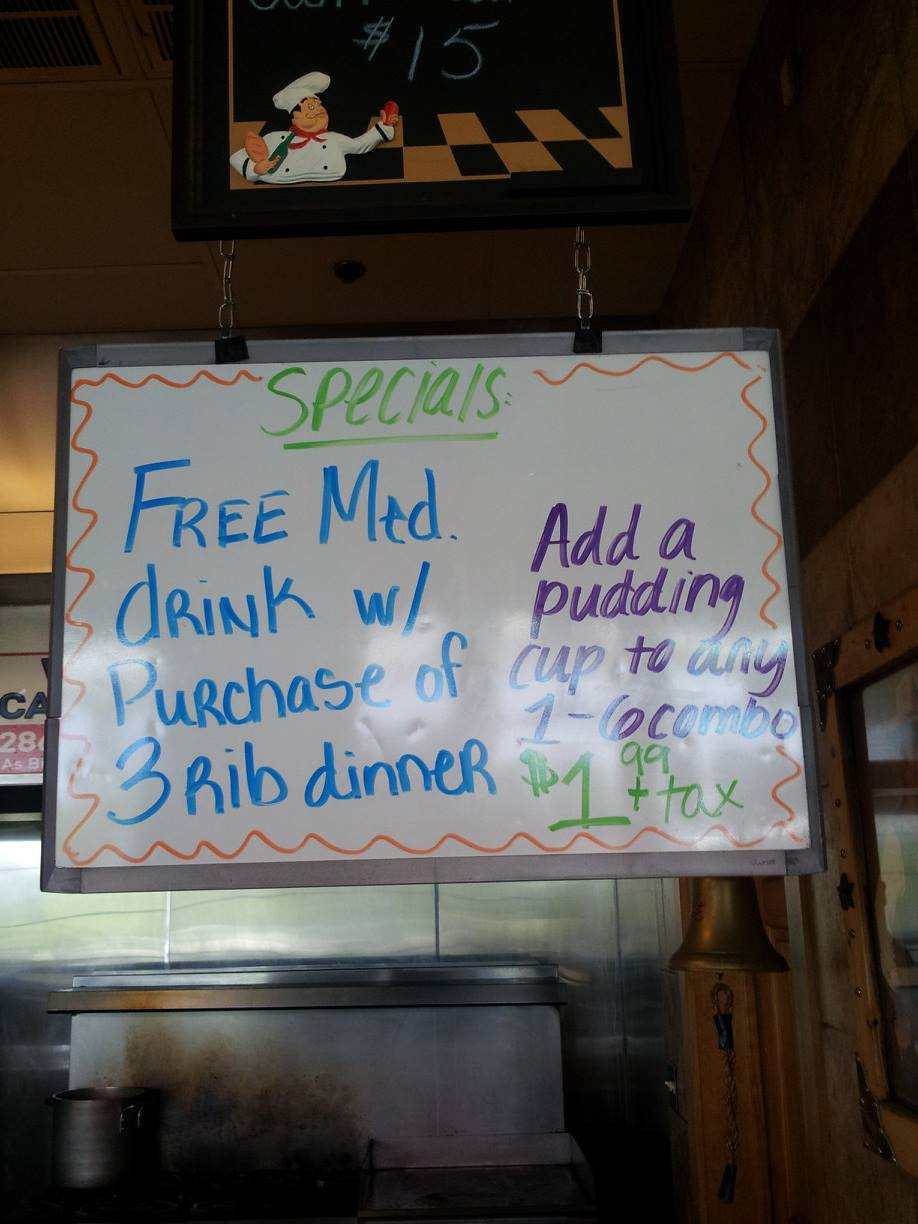 $15
Specials:
FREE Med.
drink w/
Purchase of
3 Rib dinner
Add a
pudding
cup to any
1-6 combo
$1.99 + tax
CA
28¢
As Bi